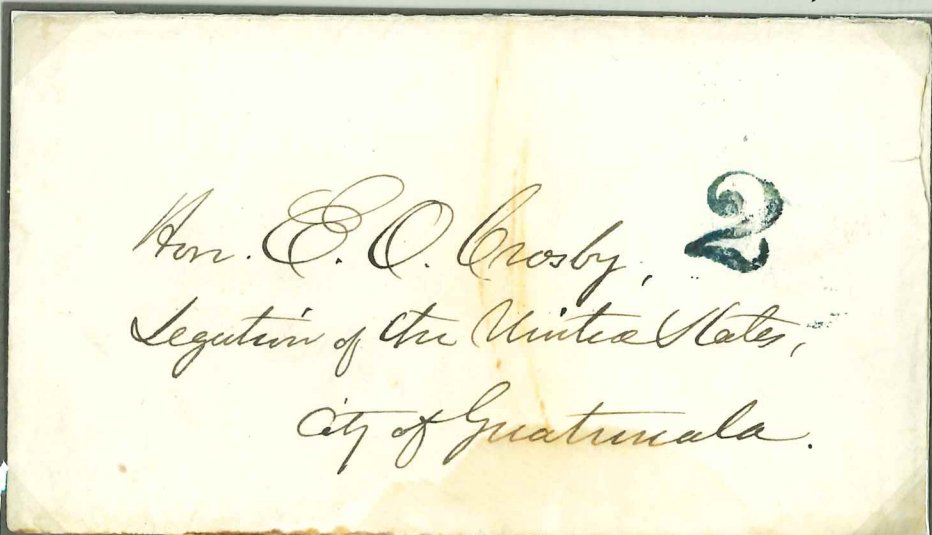 Hon. E. O. Crosby, 2
Legation of the United States,
City of Guatemala.